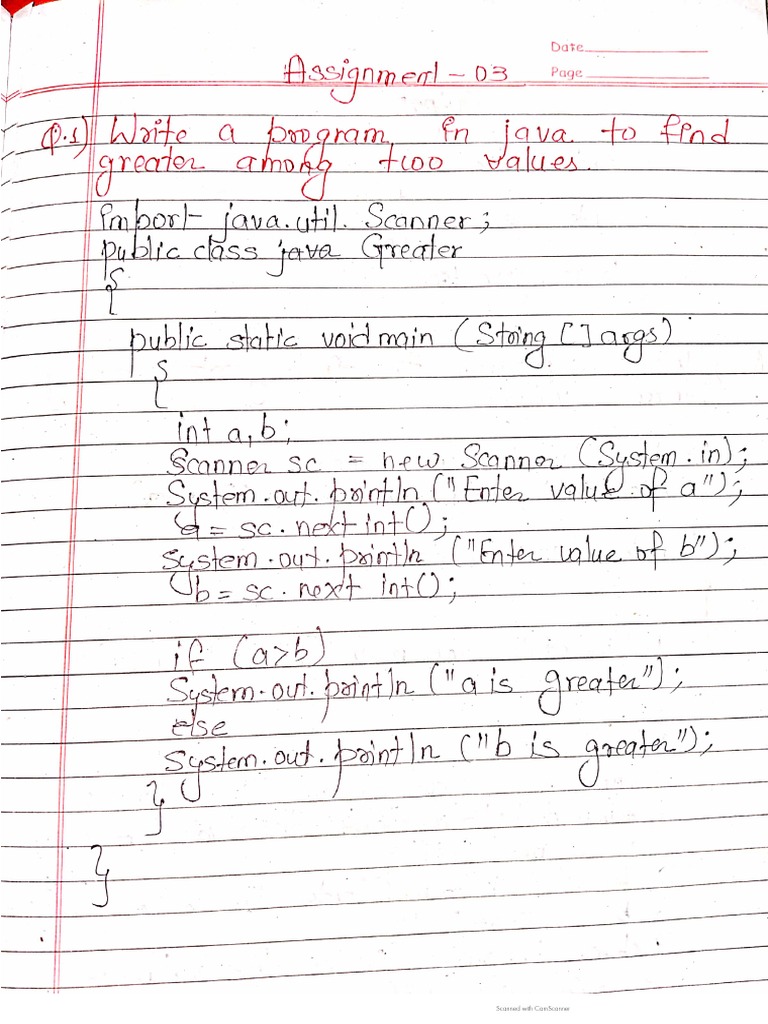 Date
Assignment - 03
Page
Q.1) Write a program in java to find
greater among two values.
import java.util.Scanner;
public class java Greater
{
public static void main (String [] args)
{
int a,b;
Scanner sc = new Scanner (System.in);
System.out.println ("Enter value of a");
a = sc.next int();
System.out.println ("Enter value of b");
b = sc.next int();
if (a>b)
System.out.println ("a is greater");
else
System.out.println ("b is greater");
}
}
Scanned with CamScanner